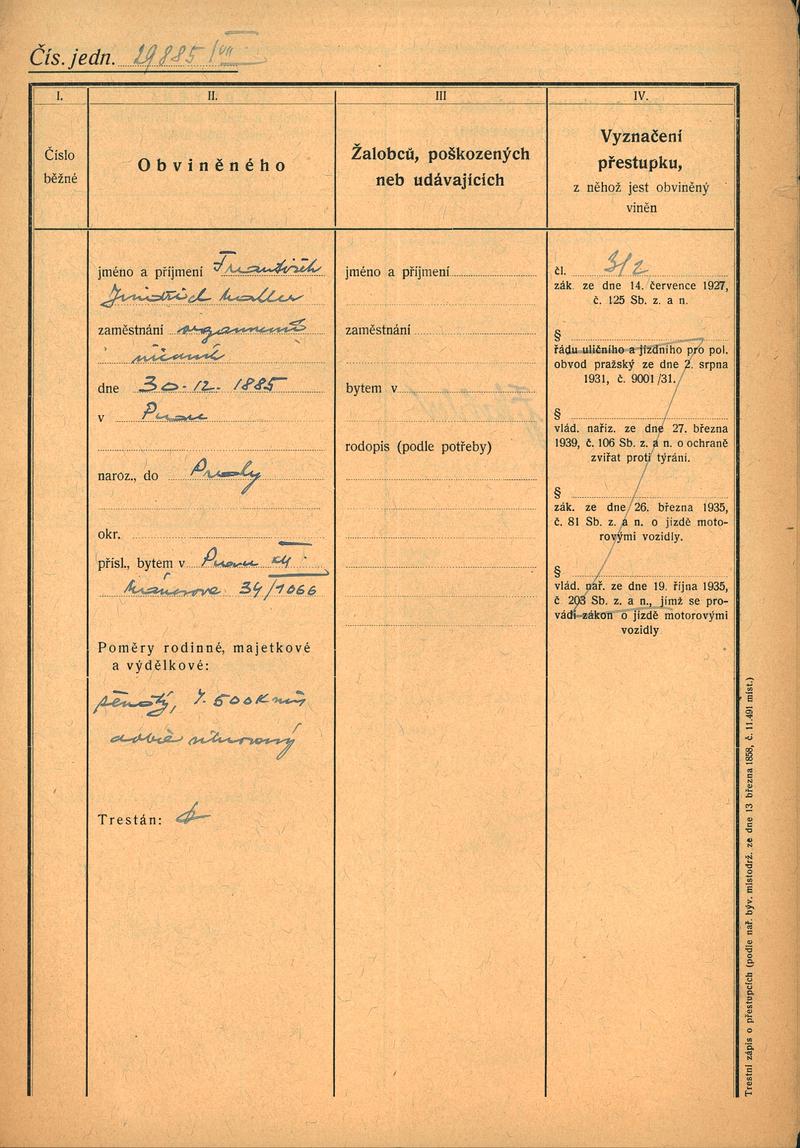 Čís. jedn. 29885/VII
I.
II.
III
IV.
Číslo
běžné
Obviněného
Žalobců, poškozených
neb udávajících
Vyznačení
přestupku,
z něhož jest obviněný
viněn
jméno a příjmení František
zaměstnání
dne 30.12.1885
v
naroz., do
okr.
přísl., bytem v
34/1066
Poměry rodinné, majetkové
a výdělkové:
Trestán:
jméno a příjmení
zaměstnání
bytem v
rodopis (podle potřeby)
čl. 3/2
zák. ze dne 14. července 1927,
č. 125 Sb. z. a n.
§
řádu uličního a jízdního pro pol.
obvod pražský ze dne 2. srpna
1931, č. 9001/31.
§
vlád. naříz. ze dne 27. března
1939, č. 106 Sb. z. a n. o ochraně
zvířat proti týrání.
§
zák. ze dne 26. března 1935,
č. 81 Sb. z. a n. o jízdě moto-
rovými vozidly.
§
vlád. nař. ze dne 19. října 1935,
č 203 Sb. z. a n., jímž se pro-
vádí zákon o jízdě motorovými
vozidly
Trestní zápis o přestupcích (podle nař. býv. místodrž. ze dne 13 března 1858, č. 11.491 míst.)